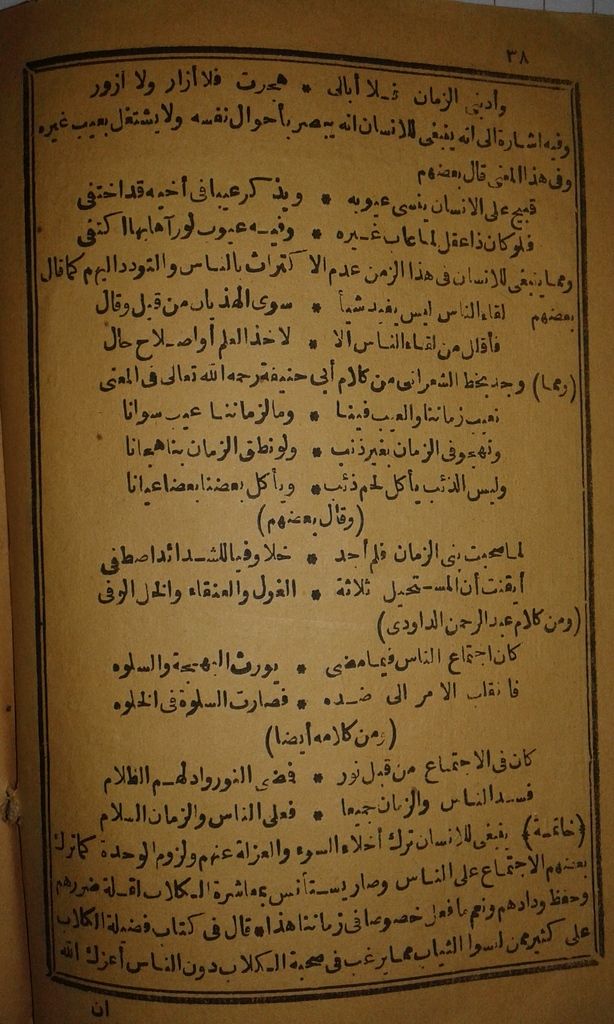 ٣٨
وأدبنى الزمان فـلا أبالى * هجرت فلا أزار ولا ازور
وفيه اشارة الى انه ينبغى للانسان انه يبصر بأحوال نفسه ولا يشتغل بعيب غيره
وفى هذا المعنى قال بعضهم
قبيح على الانسان ينسى عيوبه * ويذكر عيبا فى أخيه قد اختفى
فلو كان ذا عقل لما عاب غـيره * وفيـه عيوب لو رآها بها اكتفى
ومما ينبغى للانسان فى هذا الزمن عدم الاكتراث بالناس والتودد اليهم كما قال
بعضهم لقاء الناس ليس يفيد شيأ * سوى الهذيان من قيل وقال
فأقلل من لقاء الناس الا * لاخذ العلم أو اصـلاح حال
(ومما) وجد بخط الشعرانى من كلام أبى حنيفة رحمه الله تعالى فى المعنى
نعيب زماننا والعيب فينا * وما لزماننا عيب سوانا
ونهجو فى الزمان بغير ذنب * ولو نطق الزمان بنا هجانا
وليس الذئب يأكل لحم ذئب * ويأكل بعضنا بعضا عيانا
(وقال بعضهم)
لما صحبت بنى الزمان فلم أجد * خلا وفيا للشـدائد اصطفى
أيقنت أن المسـتحيل ثلاثة * الغول والعنقاء والخل الوفى
(ومن كلام عبد الرحمن الداودى)
كان اجتماع الناس فيما مضى * يورث البهجة والسلوه
فانقلب الامر الى ضـده * فصارت السلوة فى الخلوه
(ومن كلامه أيضا)
كان فى الاجتماع من قبل نور * فمضى النور وادلهـم الظلام
فسـد الناس والزمان جميعا * فعلى الناس والزمان السلام
(خاتمـة) ينبغى للانسان ترك أخلاء السوء والعزلة عنهم ولزوم الوحدة كما ترك
بعضهم الاجتماع على الناس وصار يسـتأنس بمعاشرة الـكلاب لقـلة ضررهم
وحفظ ودادهم ونعم ما فعل خصوصا فى زماننا هذا * قال فى كتاب فضيلة الكلاب
على كثير ممن لبسوا الثياب مما يرغب فى صحبة الـكلاب دون الناس أعزك الله
ان